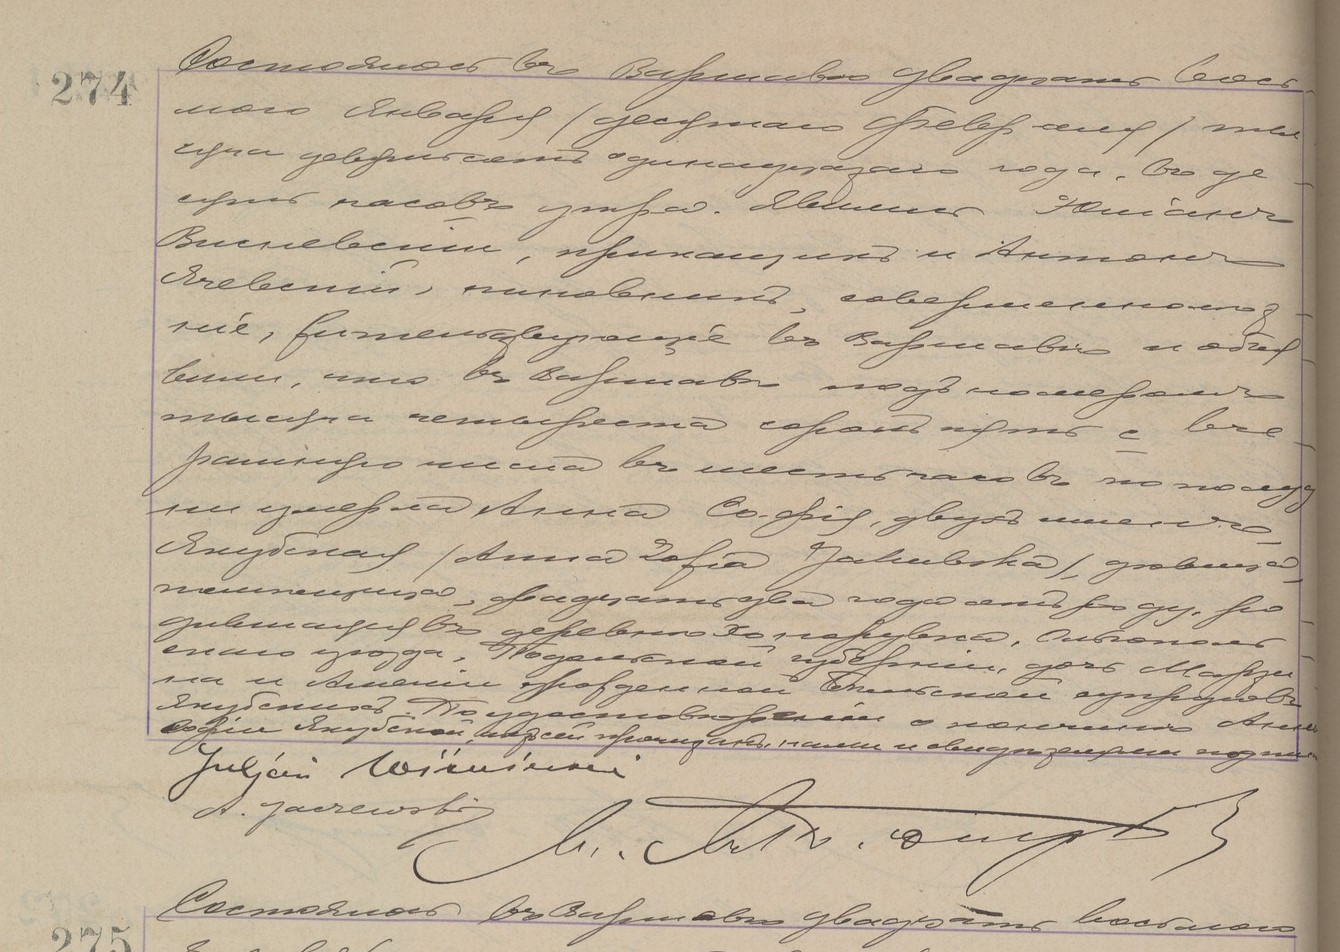 274
Состоялось въ Варшавѣ двадцать вось-
мого Января /десятаго Февраля/ ты-
сяча девятьсотъ одинадцатаго года, въ де-
сять часовъ утра. Явились Юліанъ
Висневскій, прикащикъ и Антонъ
Ячевскій, чиновникъ, совершеннолѣт-
ніе, жительствующіе въ Варшавѣ и объя-
вили, что въ Варшавѣ подъ номеромъ
тысяча четыреста сорокъ пять с вче-
рашняго числа въ шесть часовъ по полуд-
ни умерла Анна Софія, двухъ именъ,
Якубская /Anna Zofia Jakubska/, дѣвица,
помѣщица, двадцать два года отъ роду, ро-
дившаяся въ деревнѣ Хонорувка,
скаго уѣзда, Подольской губерніи, дочь Марци-
на и Амеліи урожденной Бѣльской супруговъ
Якубскихъ. По удостовѣреніи о кончинѣ Анны
Софіи Якубской, актъ сей прочитанъ, нами и свидѣтелями подпи-
Juljan Wiśniewski
A. Jaczewski
275
Состоялось въ Варшавѣ двадцать восьмого